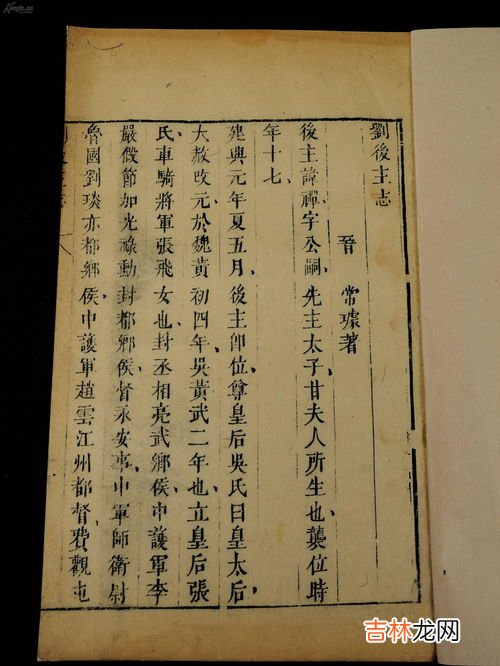 劉後主志
晉 常璩著
後主諱禪字公嗣先主太子甘夫人所生也襲位時
年十七
建興元年夏五月後主即位尊皇后吳氏曰皇太后
大赦改元於魏黃初四年吳黃武二年也立皇后張
氏車騎將軍張飛女也封丞相亮武鄉侯中護軍李
嚴假節加光祿勳封都鄉侯督永安事中軍師衛尉
魯國劉琰亦都鄉侯中護軍趙雲江州都督費觀屯
Kongfz.com
吉林龙网